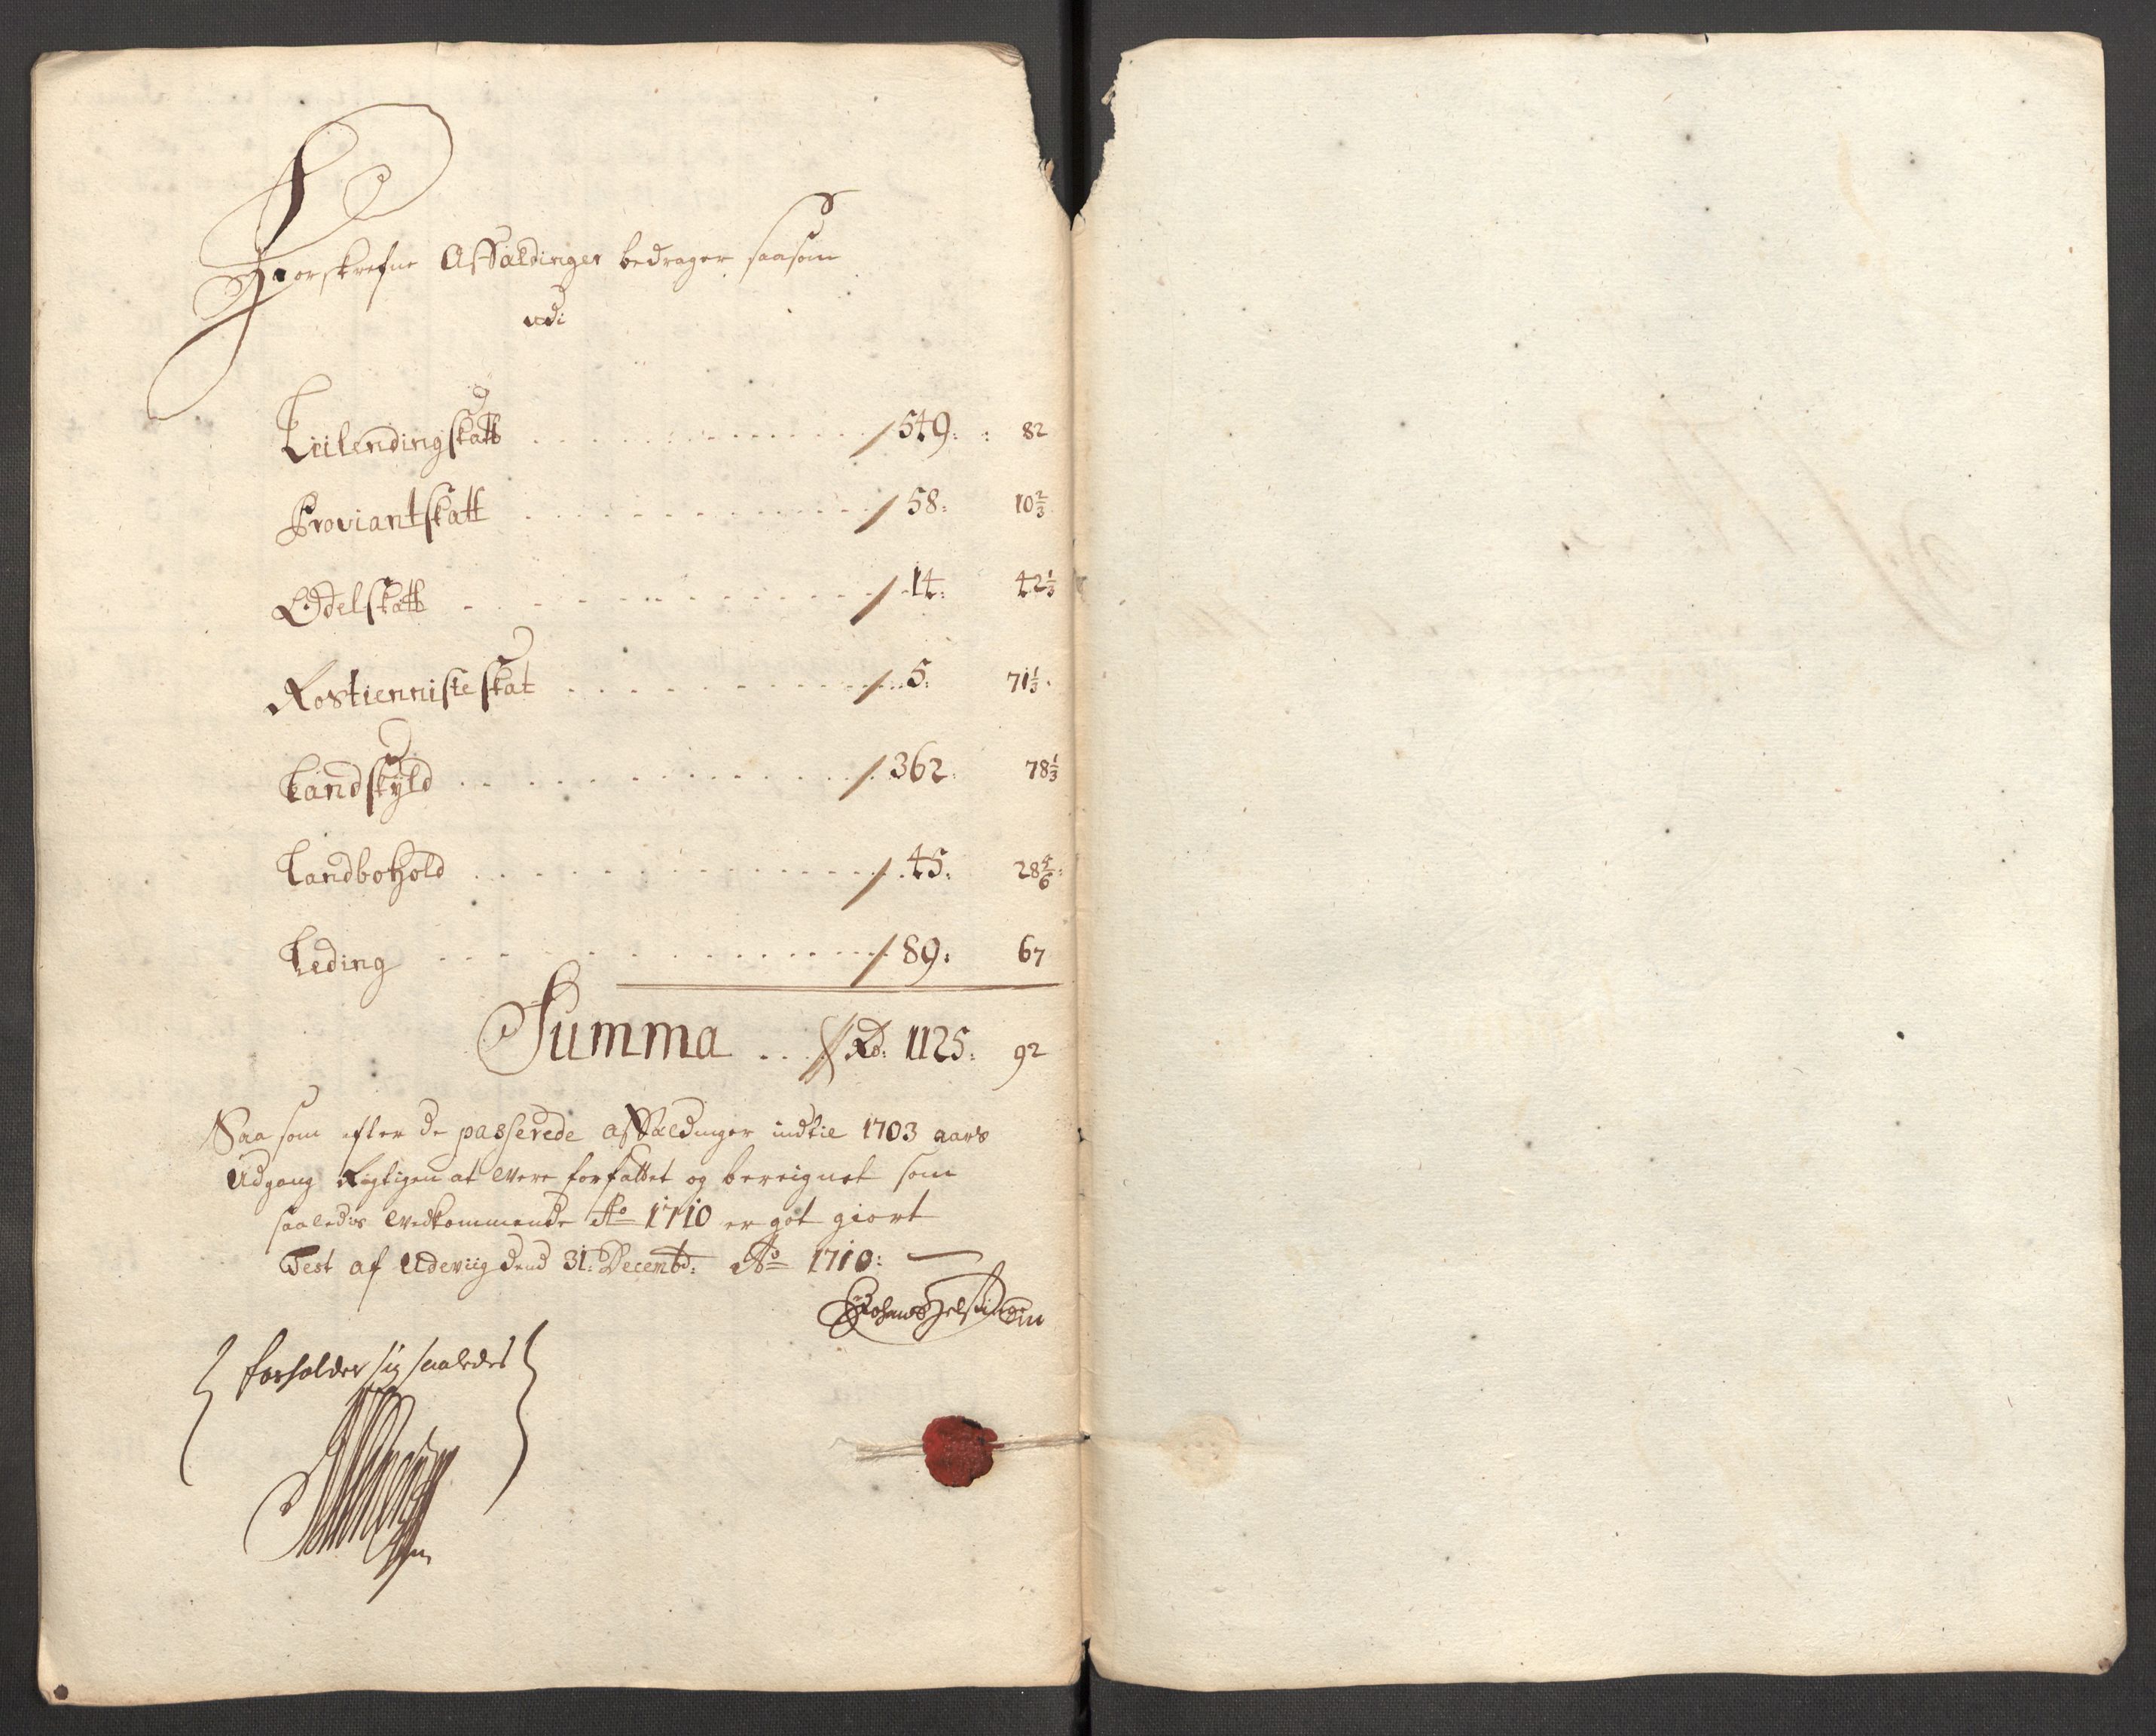 Foorskrefne Affældinger bedrager saasom
udi
Leilendingskatt / 549: : 82
Proviantskatt / 58: 10 2/3
Odelskatt / 14: 42 1/3
Rostienniste skat / 5: 71 1/3
Landskÿld / 362: 78 1/3
Landbohold / 45: 28 5/6
Leding / 89: 67
Summa Rd: 1125: 92
Saa som efter de passerede affældinger indtil 1703 aars
Udgang Rigtigen at være forfattet og bereignet som
saaledis vedkommende Ao 1710 er got giort
Test af Udeviig dend 31: Decembr: Ao 1710:
forholder sig saaledes